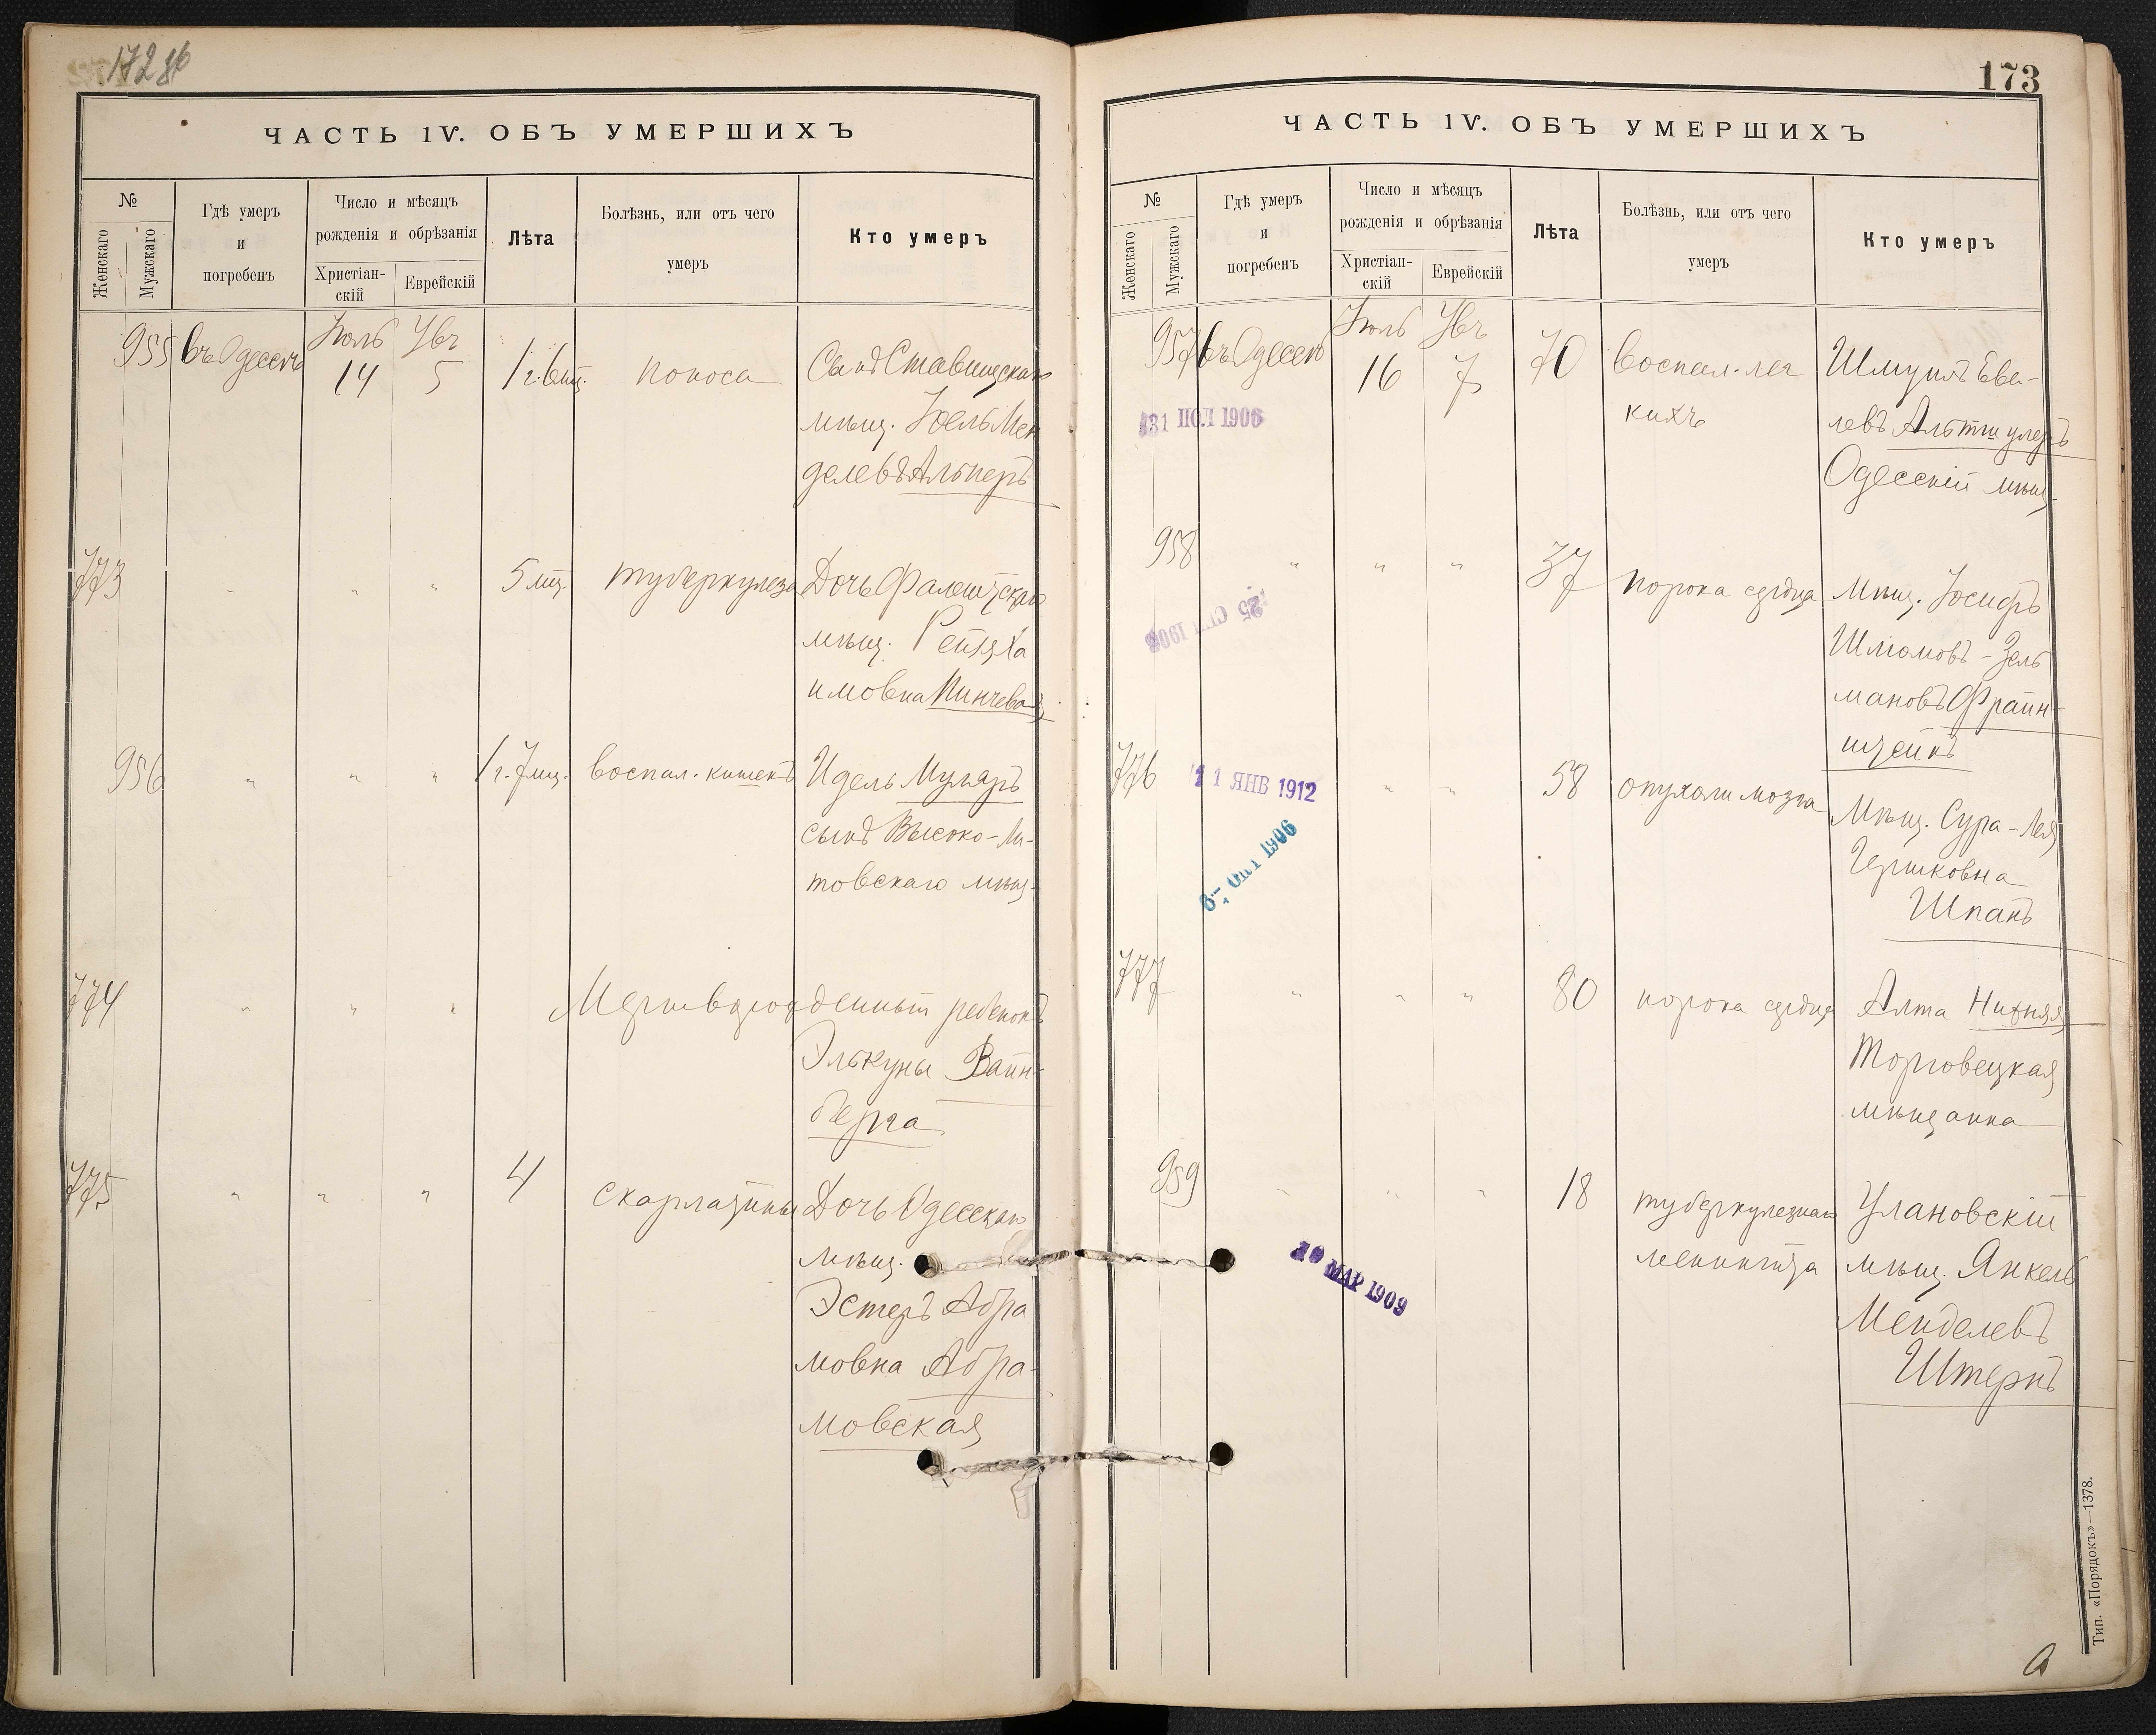 172 об
ЧАСТЬ 1V. ОБЪ УМЕРШИХЪ
№
Женскаго
Мужскаго
Гдѣ умеръ
и
погребенъ
Число и мѣсяцъ
рожденія и обрѣзанія
Христіан-
скій
Еврейскій
Лѣта
Болѣзнь, или отъ чего
умеръ
Кто умеръ
955 въ Одессѣ Іюль 14 5 1 г. 6 мц. поноса Сынъ Ставищскаго
мѣщ. Іоель Мен
делевъ Альперъ
773 " " " 5 мц. туберкулеза Дочь Фалештскаго
мѣщ. Рейзя Ха
имовна Пинчевская
956 " " " 1 г. 7 мц. воспал. кишекъ Идель Муляръ
сынъ Высоко-Ли-
товскаго мѣщ.
774 " " " Мертворожденный ребенокъ
Элькуны Вайн-
берга
775 " " " 4 скарлатины Дочь Одесскаго
мѣщ.
Эстеръ Абра
мовна Абра-
мовская
173
ЧАСТЬ 1V. ОБЪ УМЕРШИХЪ
№
Женскаго
Мужскаго
Гдѣ умеръ
и
погребенъ
Число и мѣсяцъ
рожденія и обрѣзанія
Христіан-
скій
Еврейскій
Лѣта
Болѣзнь, или отъ чего
умеръ
Кто умеръ
957 въ Одессѣ Іюль 16 7 70 воспал. лег Шмуилъ Еве-
кихъ левъ Альтшулеръ
31 ІЮЛ 1906
Одесскій мѣщ.
958 " " " 37 порока сердца Мѣщ. Іосифъ
25 СЕН 1906
Шліомовъ-Зель
мановъ Файн-
штейнъ
776 11 ЯНВ 1912 " " 58 опухоли мозга Мѣщ. Сура-Лея
6- ОКТ 1906
Гершковна
Шпанъ
777 " " " 80 порока сердца Алта Нижняя
Торговецкая
мѣщанка
959 " " " 18 туберкулезнаго Улановскій
менингита мѣщ. Янкель
19 МАР 1909
Менделевъ
Штернъ
Тип. «Порядокъ»—1378.